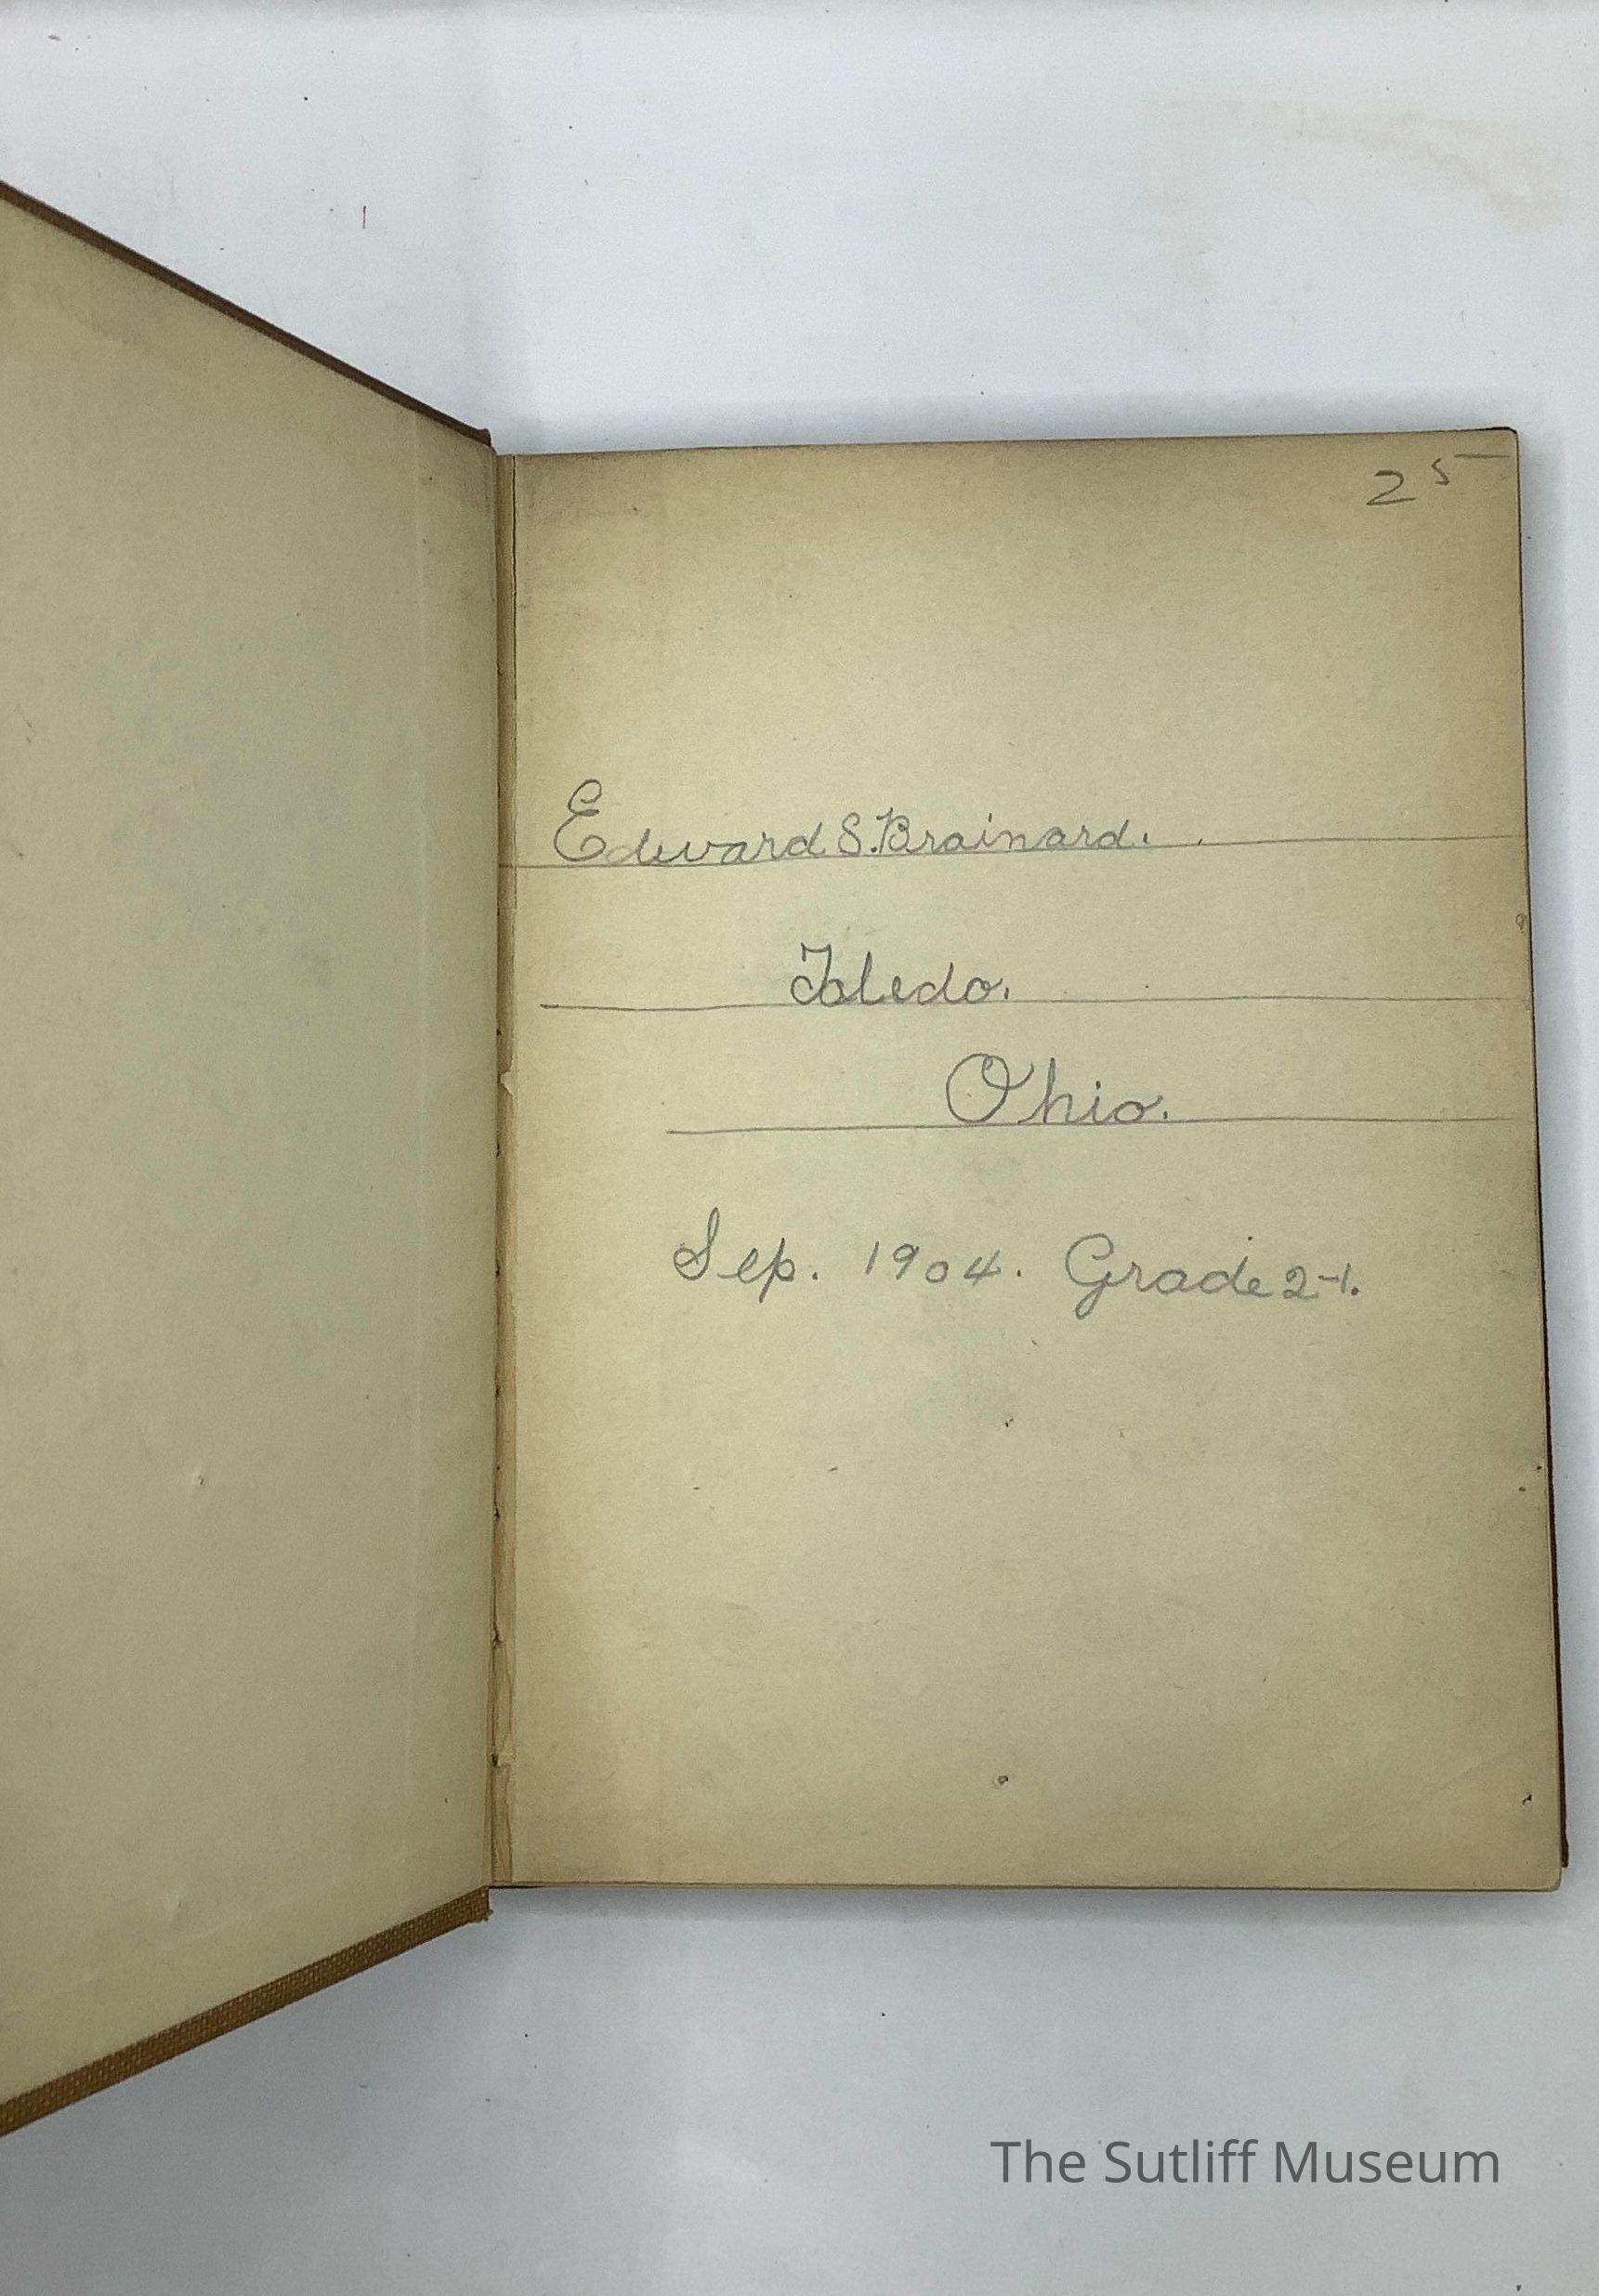 25
Edward S. Brainard.
Toledo.
Ohio.
Sep. 1904. Grade 2-1.
The Sutliff Museum